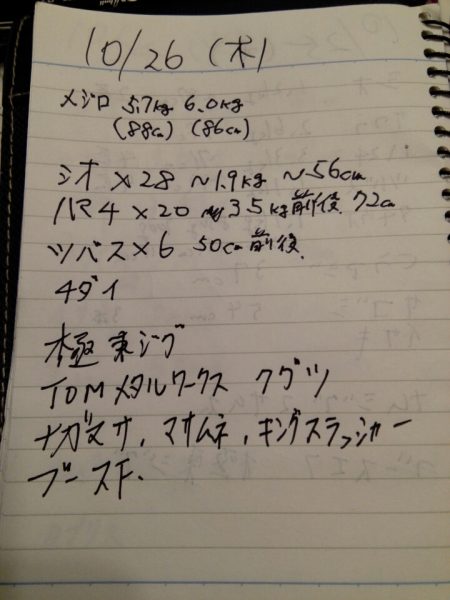 10/26 (木)
メジロ 5.7kg 6.0kg
(88cm) (86cm)
シオ ×28 ~1.9kg ~56cm
ハマチ ×20 3.5kg前後 72cm
ツバス×6 50cm前後.
チダイ
極東ジグ
TOMメタルワークス クグツ
ナガマサ, マサムネ, キングスラッシャー
ブースF.